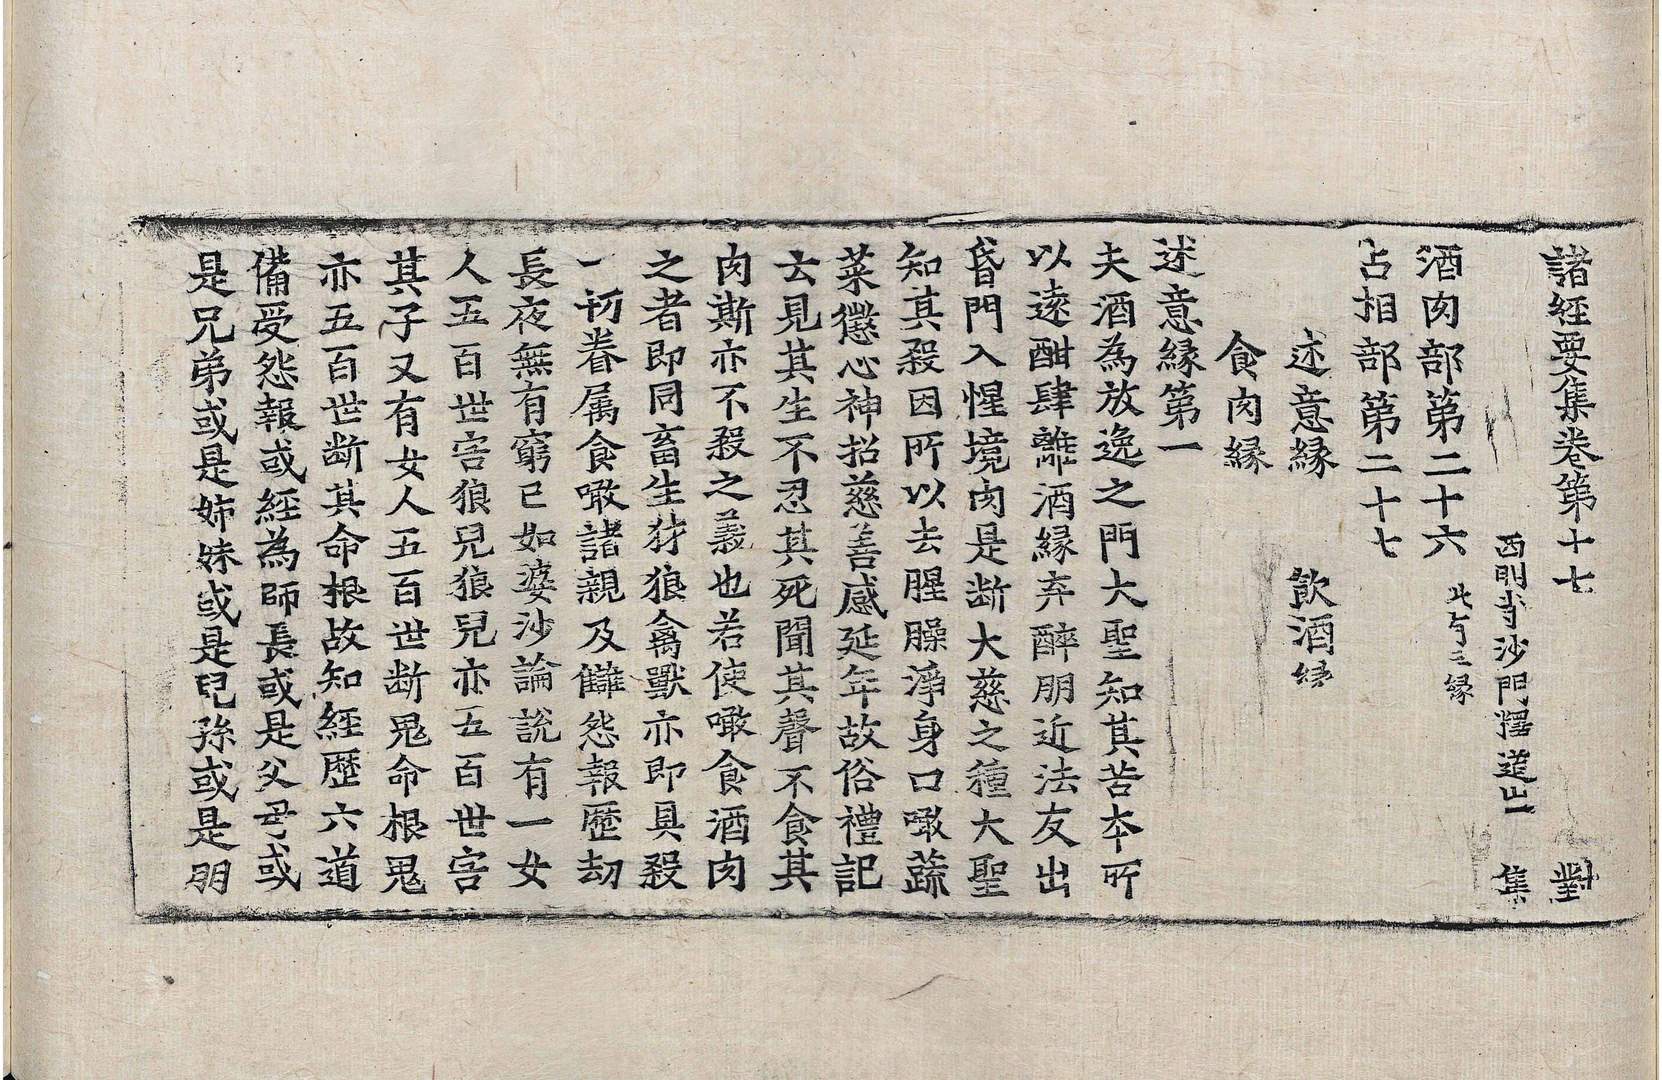 諸經要集卷第十七 對
西明寺沙門釋道世 集
酒肉部第二十六 此有三緣
占相部第二十七
述意緣 飲酒緣
食肉緣
述意緣第一
夫酒為放逸之門大聖知其苦本所
以遠酣肆離酒緣弃醉朋近法友出
昏門入惺境肉是断大慈之種大聖
知其殺因所以去腥臊淨身口噉蔬
菜懲心神招慈善感延年故俗禮記
云見其生不忍其死聞其聲不食其
肉斯亦不殺之義也若使噉食酒肉
之者即同畜生犲狼禽獸亦即具殺
一切眷属食噉諸親及讎怨報歷劫
長夜無有窮已如婆沙論說有一女
人五百世害狼兒狼兒亦五百世害
其子又有女人五百世断鬼命根鬼
亦五百世断其命根故知經歷六道
備受怨報或經為師長或是父母或
是兄弟或是姊妹或是兒孫或是朋